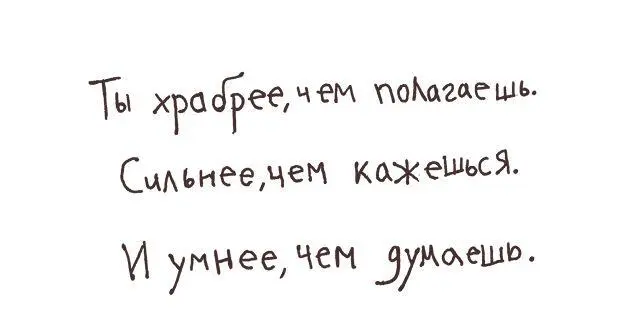 Ты храбрее, чем полагаешь.
Сильнее, чем кажешься.
И умнее, чем думаешь.